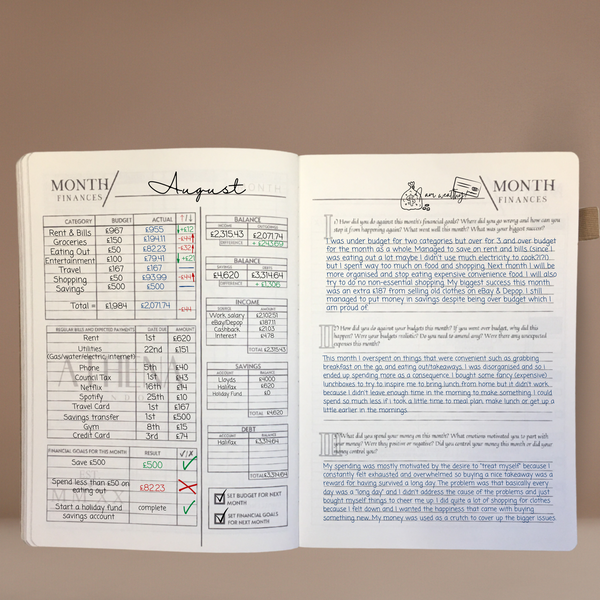 MONTH
FINANCES
August
CATEGORY BUDGET ACTUAL ↑/↓
Rent & Bills £967 £955 ↓£12
Groceries £150 £194.11 ↑£44
Eating Out £50 £82.23 ↑£32
Entertainment £100 £79.41 ↓£21
Travel £167 £167
Shopping £50 £93.99 ↑£44
Savings £500 £500
Total = £1,984 £2,071.74
REGULAR BILLS AND EXPECTED PAYMENTS DATE DUE AMOUNT
Rent 1st £620
Utilities 22nd £151
(Gas/water/electric/internet)
Phone 5th £40
Council Tax 1st £43
Netflix 16th £14
Spotify 25th £10
Travel Card 1st £167
Savings transfer 1st £500
Gym 8th £15
Credit Card 3rd £74
FINANCIAL GOALS FOR THIS MONTH RESULT ✓/✗
Save £500 £500 ✓
Spend less than £50 on £82.23 ✗
eating out
Start a holiday fund complete ✓
savings account
BALANCE
INCOME OUTGOINGS
£2,315.43 £2,071.74
DIFFERENCE
BALANCE
SAVINGS DEBTS
£4,620 £3,314.64
DIFFERENCE + £1,306
INCOME
SOURCE AMOUNT
Work, salary £2102.51
eBay/Depop £187.11
Cashback £21.03
Interest £4.78
TOTAL £2,315.43
SAVINGS
ACCOUNT BALANCE
Lloyds £4000
Halifax £620
Holiday Fund £0
TOTAL £4,620
DEBT
ACCOUNT BALANCE
Halifax £3,314.64
TOTAL £3,314.64
SET BUDGET FOR NEXT
MONTH
SET FINANCIAL GOALS
FOR NEXT MONTH
I am wealthy
MONTH
FINANCES
How did you do against this month's financial goals? Where did you go wrong and how can you
stop it from happening again? What went well this month? What was your biggest success?
I was under budget for two categories but over for 3 and over budget
for the month as a whole. Managed to save on rent and bills (since I
was eating out a lot maybe I didn't use much electricity to cook?!?!)
but I spent way too much on food and shopping. Next month I will be
more organised and stop eating expensive convenience food. I will also
try to do no non-essential shopping. My biggest success this month
was an extra £187 from selling old clothes on eBay & Depop. I still
managed to put money in savings despite being over budget which I
am proud of.
How did you do against your budgets this month? If you went over budget, why did this
happen? Were your budgets realistic? Do you need to amend any? Were there any unexpected
expenses this month?
This month I overspent on things that were convenient such as grabbing
breakfast on the go, and eating out/takeaways. I was disorganised and so I
ended up spending more as a consequence. I bought some fancy (expensive)
lunchboxes to try to inspire me to bring lunch from home but it didn't work
because I didn't leave enough time in the morning to make something. I could
spend so much less if I took a little time to meal plan, make lunch or get up a
little earlier in the mornings.
What did you spend your money on this month? What emotions motivated you to part with
your money? Were they positive or negative? Did you control your money this month or did your
money control you?
My spending was mostly motivated by the desire to "treat myself" because I
constantly felt exhausted and overwhelmed so buying a nice takeaway was a
reward for having survived a long day. The problem was that basically every
day was a "long day" and I didn't address the cause of the problems and just
bought myself things to cheer me up. I did quite a lot of shopping for clothes
because I felt down and I wanted the happiness that came with buying
something new. My money was used as a crutch to cover up the bigger issues